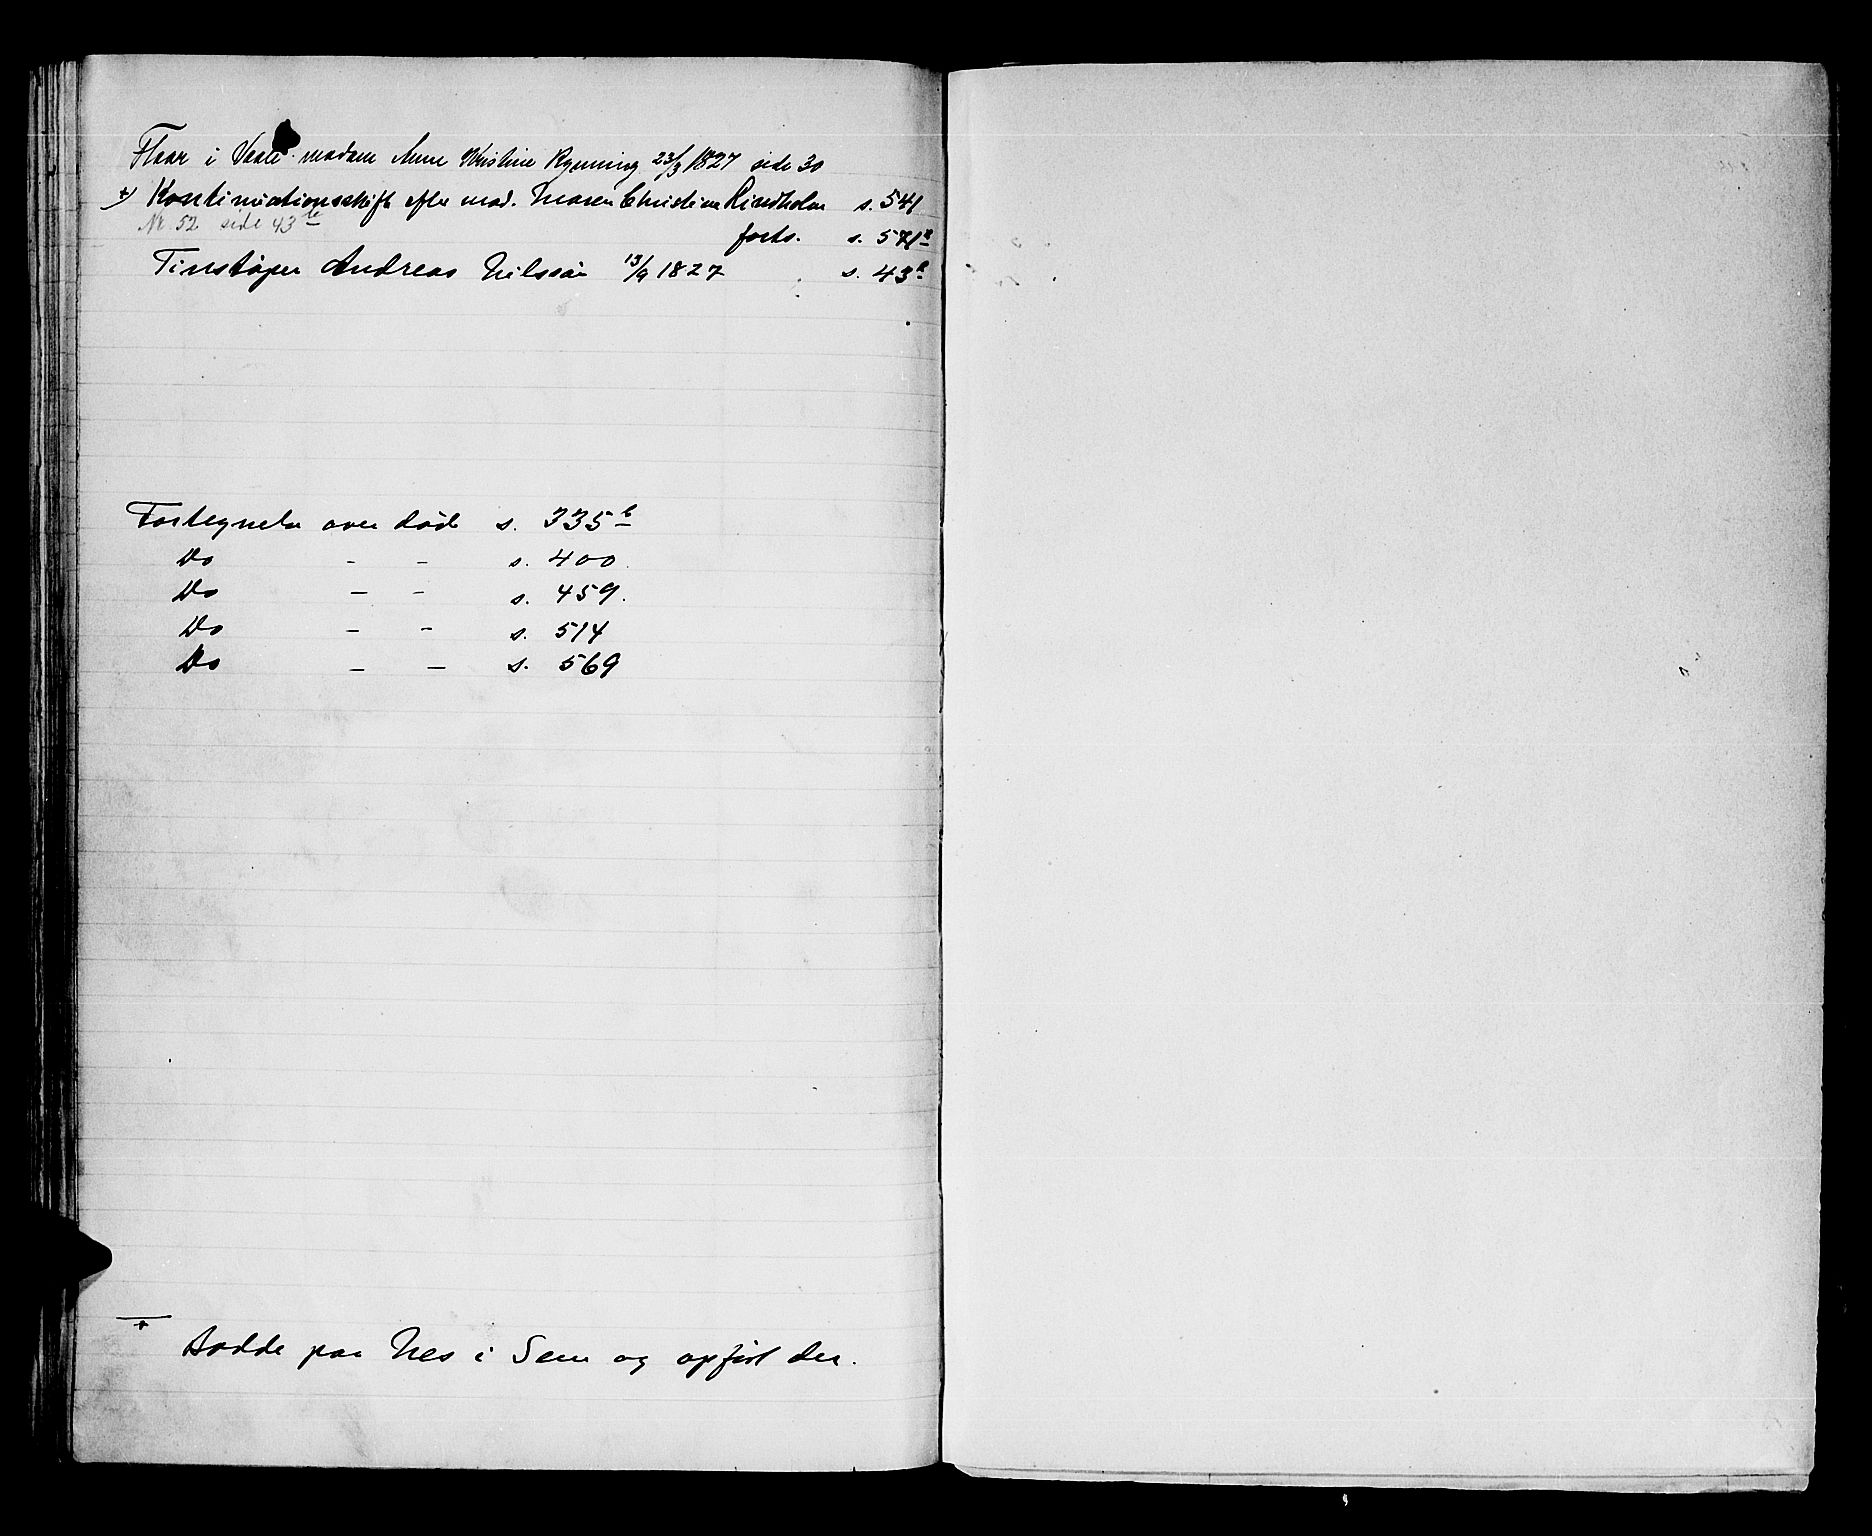 Flaar i Vaale madam Anne Kristine Rynning 23/3 1827 side 30
+) Kontinuationsskift efter mad. Maren Christine Lindholm s. 541
Nr. 52 side 43b
forts. s. 571a
Tinstøper Andreas Nilssøn 13/9 1827 s. 43a
Fortegnelse over død s. 335b
Do - - s. 400
Do - - s. 459.
Do - - s. 514
Do - - s. 569
+ Bodde paa Nes i Sem og opført der.